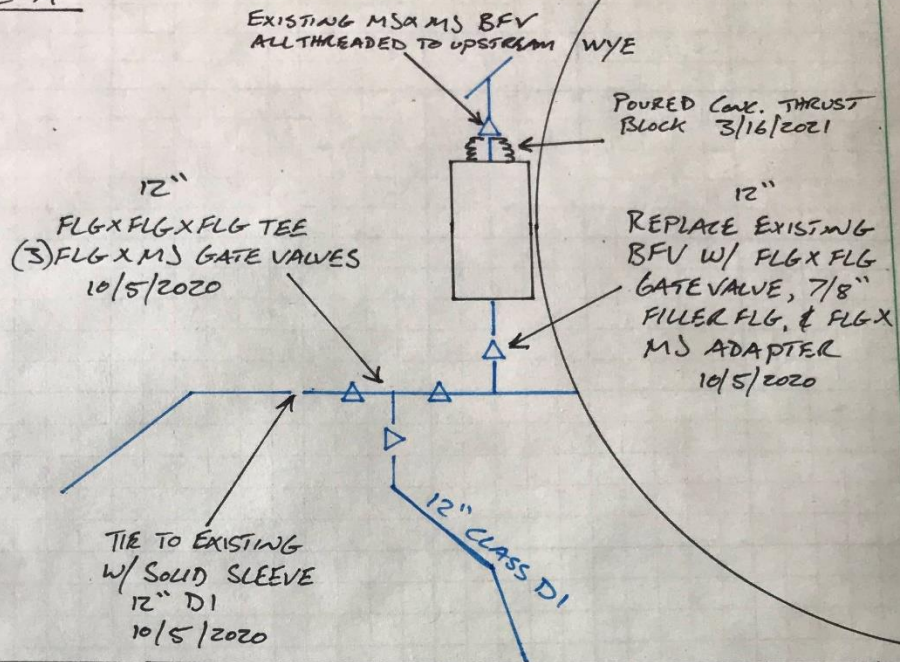 EXISTING MSXMS BFV
ALL THREADED TO UPSTREAM WYE
POURED CONC. THRUST
BLOCK 3/16/2021
12"
FLGXFLGXFLG TEE
(3)FLG X MS GATE VALVES
10/5/2020
12"
REPLACE EXISTING
BFV W/ FLG X FLG
GATE VALVE, 7/8"
FILLER FLG, & FLG X
MS ADAPTER
10/5/2020
12" CLASS DI
TIE TO EXISTING
W/ SOLID SLEEVE
12" DI
10/5/2020